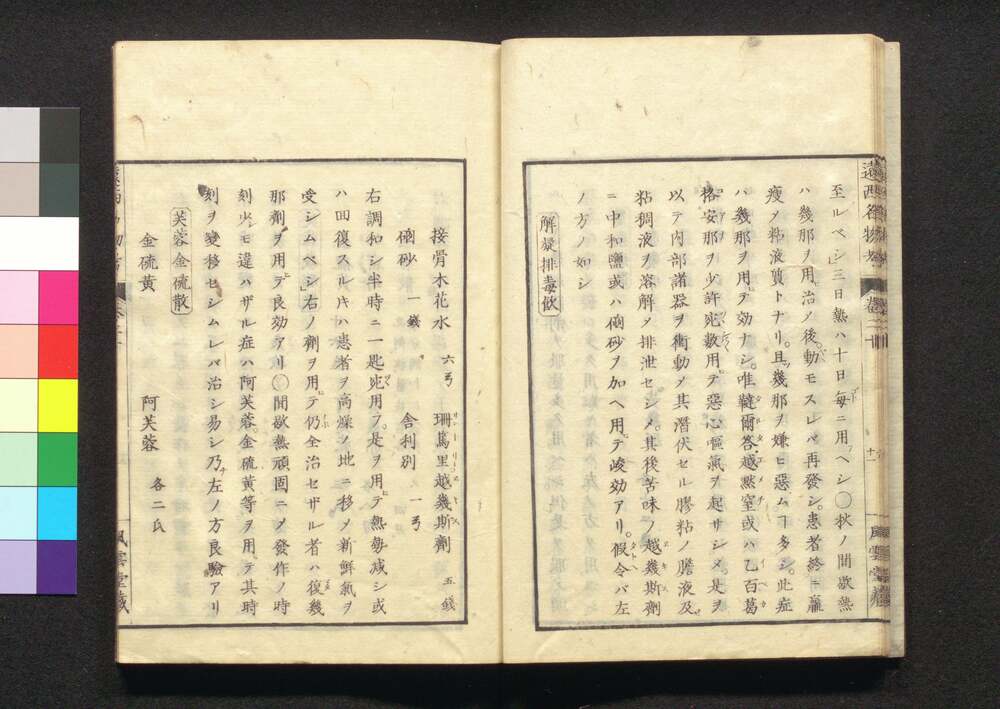 遠西名物考
至ルベシ○三日熱ハ十日毎ニ用フベシ○秋ノ間歇熱
ハ幾那ヲ用テ治メ後動モスレバ再發シ患者終ニ羸
瘦メ粘液質トナリ且ツ幾那ヲ嫌ヒ惡ム丁多シ此症
バ幾那ヲ用テ効ナシ唯韃爾答越黙窒或ハ乙百葛
格安那ヲ少許宛數用テ惡心嘔氣ヲ起サシメ是ヲ
以テ內部諸器ヲ衝動メ其潛伏セル膠粘ノ膽液及
粘稠液ヲ溶解メ排泄セシメ其後苦味ノ越幾斯劑
ニ中和鹽或ハ硇砂ヲ加ヘ用テ峻効アリ假令バ左
ノ方ノ如シ
解凝排毒飲
接骨木花水 六弓 珊篤里越幾斯劑 五錢
硇砂 一錢 舍利別 一弓
右調和シ半時ニ一匙宛用フ是ヲ用テ熱每減シ或
ハ回復スル片ハ患者ヲ高燥ノ地ニ移メ新鮮氣ヲ
受シムベシ○右ノ劑ヲ用テ仍全治セザル者ハ復幾
那劑ヲ用テ良効アリ○間歇熱頑固ニメ發作ノ時
刻少モ違ハザル症ハ阿芙蓉金硫黃等ヲ用テ其時
刻ヲ變移セシムレバ治シ易シ乃左ノ方良驗アリ
芙蓉金硫散
金硫黃 阿芙蓉 各二氏
風雲堂藏